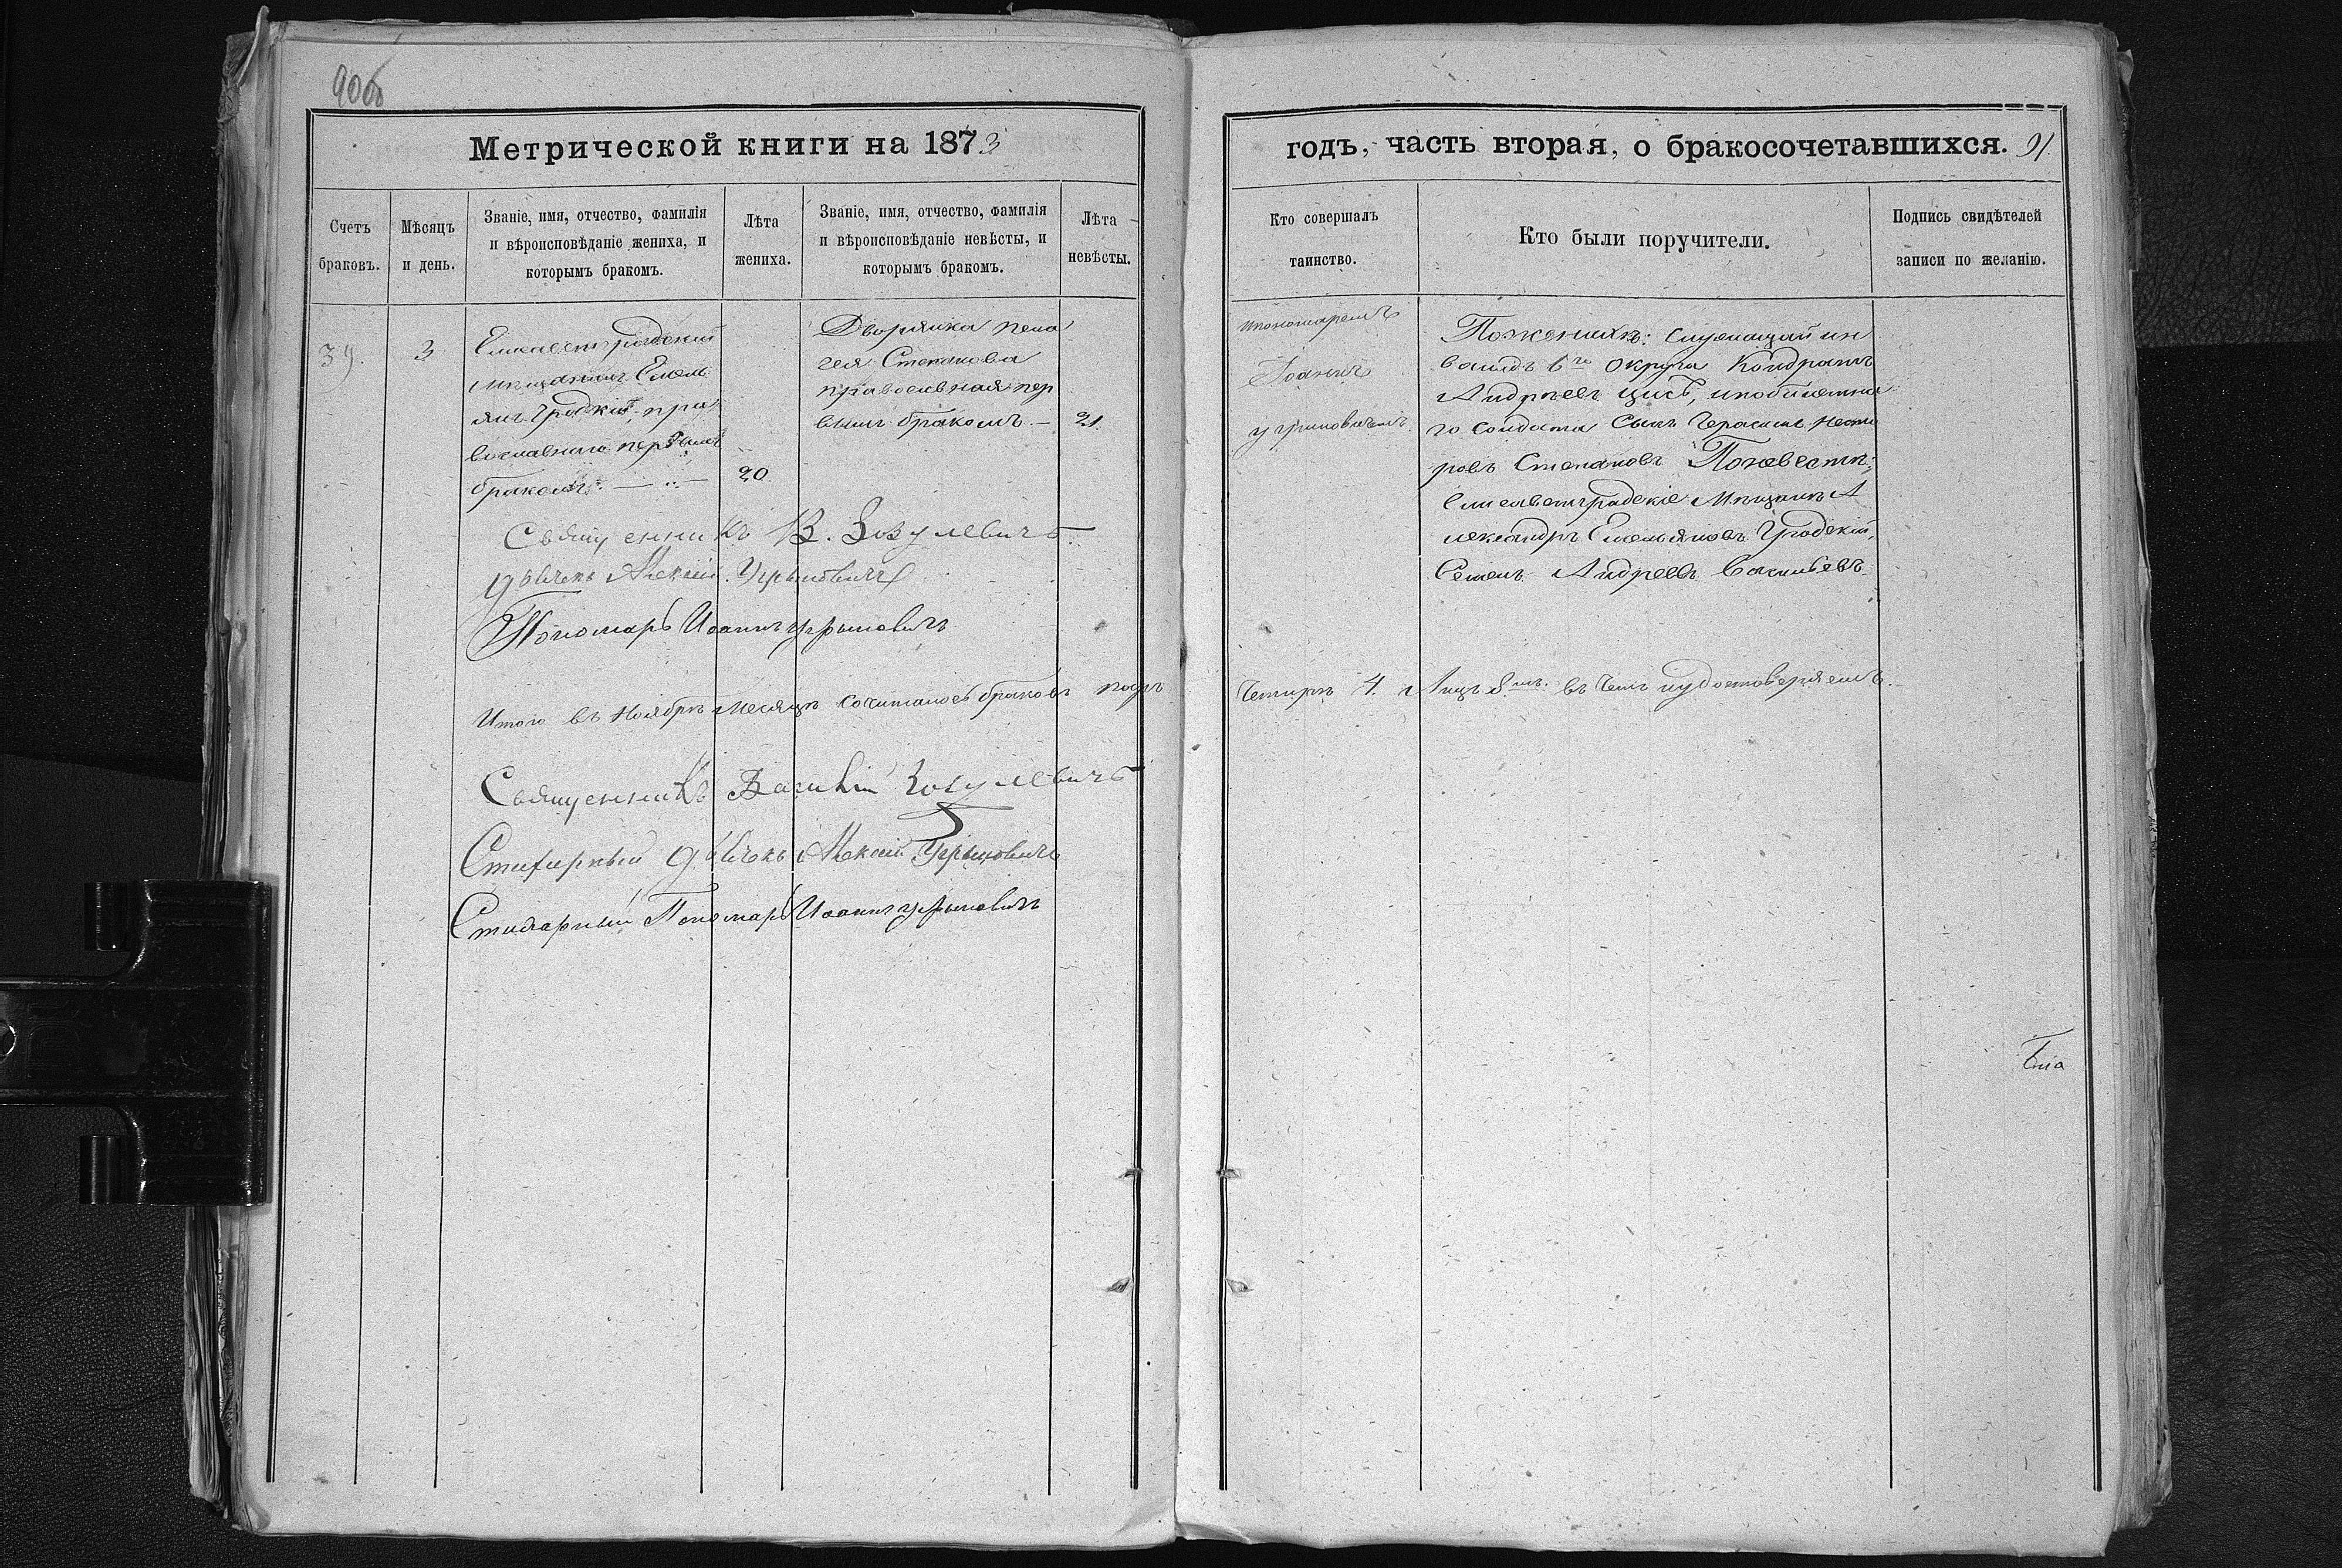 90об
Метрической книги на 1873
Счетъ браковъ.
Мѣсяцъ и день.
Званіе, имя, отчество, фамилія и вѣроисповѣданіе жениха, и которымъ бракомъ.
Лѣта жениха.
Званіе, имя, отчество, фамилія и вѣроисповѣданіе невѣсты, и которымъ бракомъ.
Лѣта невѣсты.
39.
3
Елисаветградскій
мѣщанинъ Емель
янъ Гродскій, пра
вославнаго первымъ
бракомъ. —
20
Дворянка Пела
гея Степанова
православная пер
вымъ бракомъ. —
21.
Священникъ В. Зозулевичъ.
Дьячекъ Алексій Угриновичъ
Пономарь Иоаннъ Угриновичъ
Итого въ Ноябрѣ месяцѣ сочиталось браковъ
Священникъ Василій Зозулевичъ
Стихарный дьячекъ Алексій Угриновичъ
Стихарный Пономарь Иоаннъ Угриновичъ
годъ, часть вторая, о бракосочетавшихся. 91.
Кто совершалъ таинство.
Кто были поручители.
Подпись свидѣтелей записи по желанію.
ипономаремъ
Іоанномъ
Угриновичемъ
По женихѣ: Служащій ин
валидъ 6го Округа Кондратъ
Андреевъ
го солдата сынъ Герасимъ Несте
ровъ Степановъ По невѣстѣ:
Елисаветградскіе Мѣщане А
лександръ Емельяновъ Гродскій,
Семенъ Андреевъ Васильевъ.
Четыре 4. Лицъ 8мь. въ чемъ иудостоверяемъ.